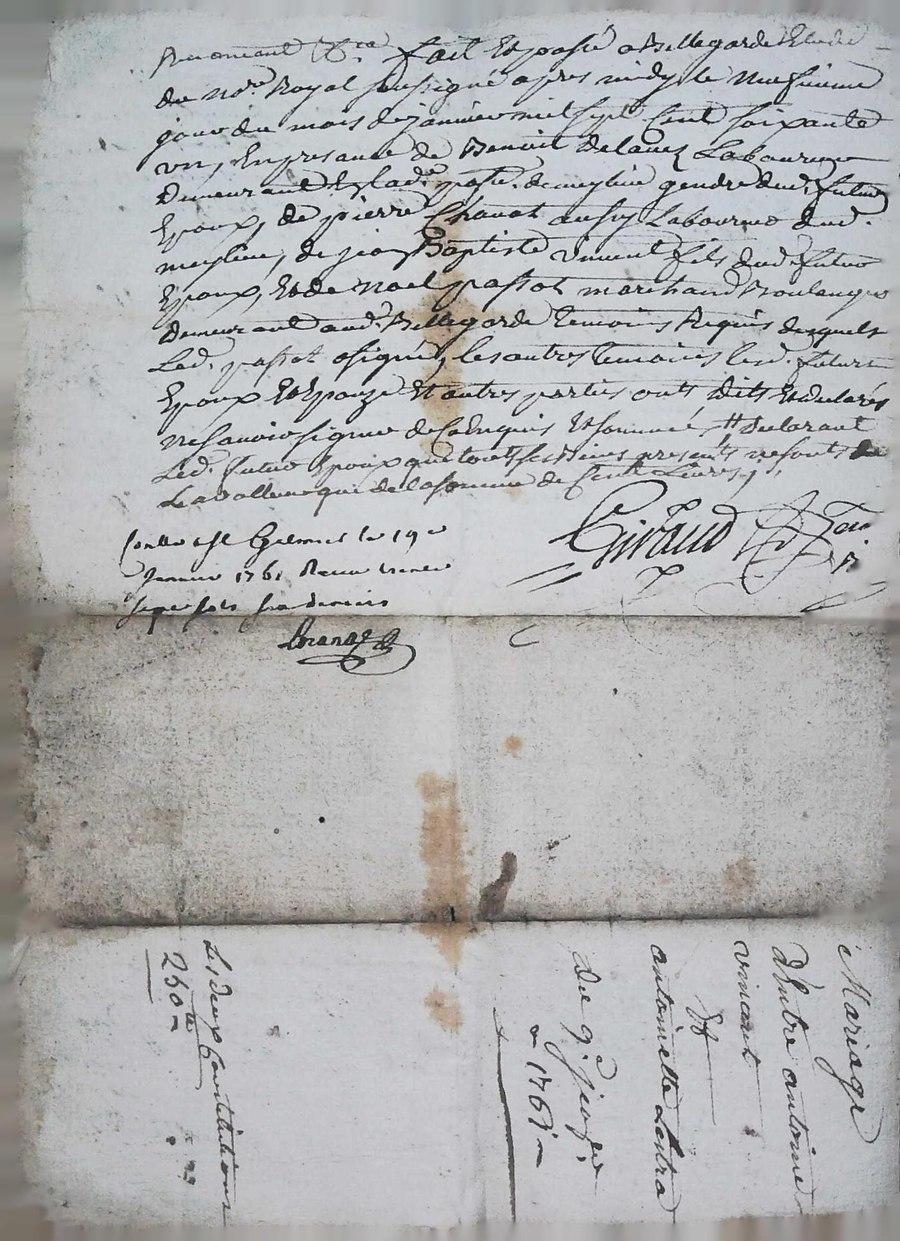 fait Et passé a Bellegarde Etude
du no.re Royal soussigné apres midy le neufvieme
jour du mois de janvier mil sept Cent soixante
un, En presance de Benoit Laboureur
Demeurant En lad. parr. de meylieu gendre dud. futur
Epoux, de pierre Chavat aussy Laboureur dud.
meylieu, de jean Baptiste vincent fils dud. futur
Epoux, Et de noel passot marchand Boulanger
demeurant aud. Bellegarde temoins Requis desquels
Led. passot a signé, les autres temoins lesd. futurs
Epoux Et Epouze Et autres parties onts dits Et declarés
ne savoir signer de Ce Enquis Et sommés // declarant
Led. futur Epoux que touts ses Biens presents ne sonts de
La valleur que de la somme de Cent Livres
Giraud
Controllé a St Galmier le 19e
janvier 1761 Receu
sols deniers
Mariage
D'entre antoine
vincent
Et
antoinette Lestra
Du 9e janver
1761
Les deux Constitutions
250 tt